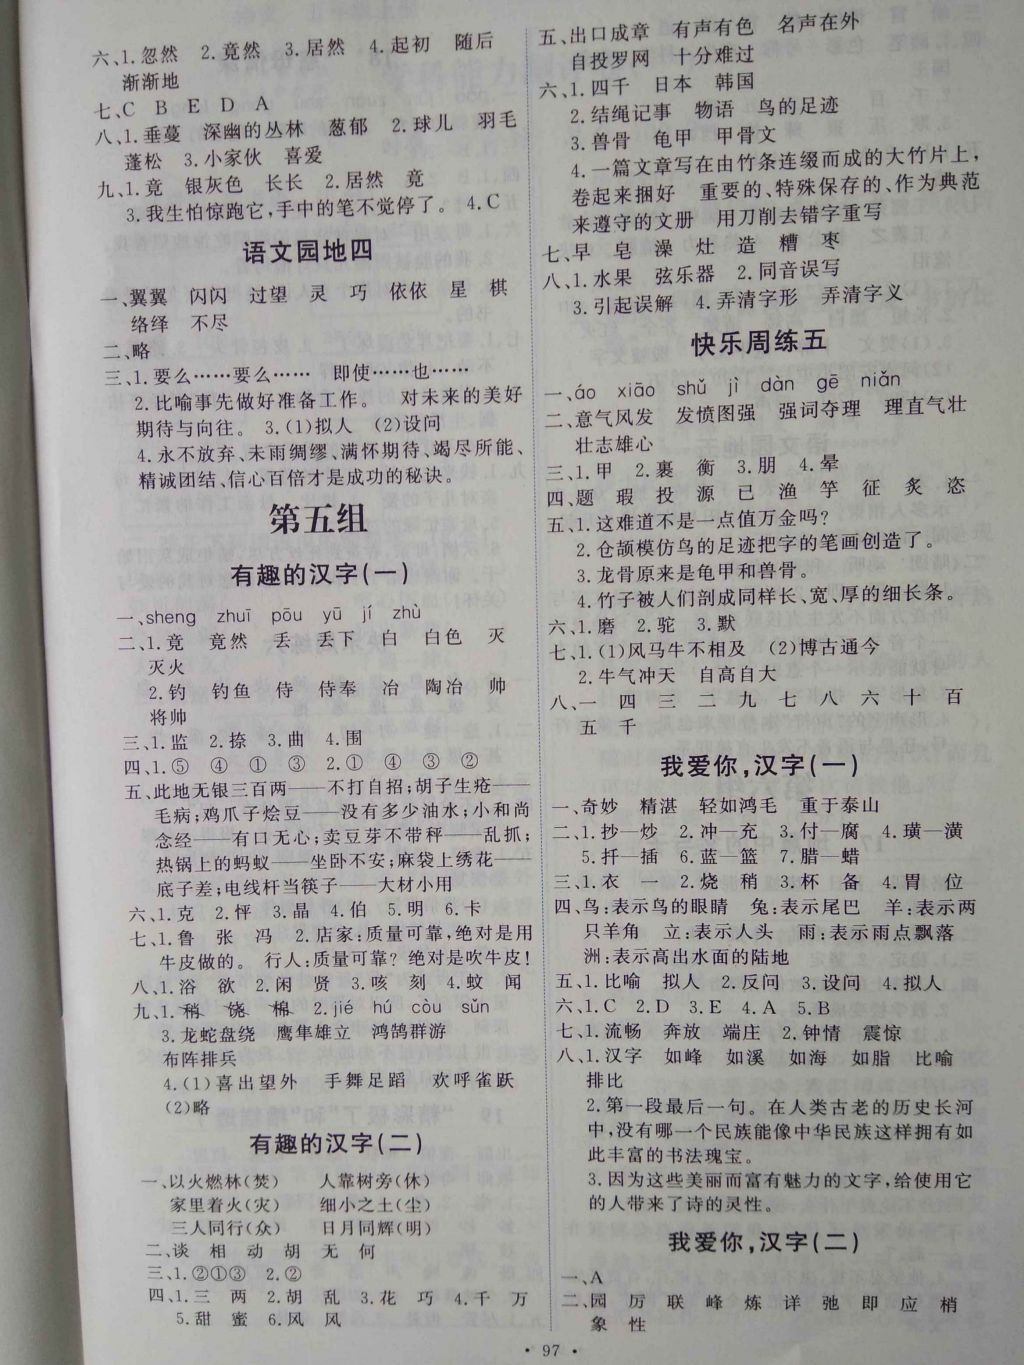 六、1.忽然　2.竟然　3.居然　4.起初　随后
渐渐地
七、C　B　E　D　A
八、1.垂蔓　深幽的丛林　葱郁　2.球儿　羽毛
蓬松　3.小家伙　喜爱
九、1.竟　银灰色　长长　2.居然　竟
3.我生怕惊跑它,手中的笔不觉停了。　4.C
语文园地四
一、翼翼　闪闪　过望　灵　巧　依依　星　棋
络绎　不尽
二、略
三、1.要么……要么……　即使……也……
2.比喻事先做好准备工作。　对未来的美好
期待与向往。　3.(1)拟人　(2)设问
4.永不放弃、未雨绸缪、满怀期待、竭尽所能、
精诚团结、信心百倍才是成功的秘诀。
第五组
有趣的汉字(一)
一、sheng　zhuī　pōu　yū　jí　zhù
二、1.竟　竟然　丢　丢下　白　白色　灭
灭火
2.钓　钓鱼　侍　侍奉　冶　陶冶　帅
将帅
三、1.监　2.捺　3.曲　4.围
四、1.⑤　④　①　③　2.①　④　③　②
五、此地无银三百两——不打自招;胡子生疮——
毛病;鸡爪子烩豆——没有多少油水;小和尚
念经——有口无心;卖豆芽不带秤——乱抓;
热锅上的蚂蚁——坐卧不安;麻袋上绣花——
底子差;电线杆当筷子——大材小用
六、1.克　2.怦　3.晶　4.伯　5.明　6.卡
七、1.鲁　张　冯　2.店家:质量可靠,绝对是用
牛皮做的。　行人:质量可靠?绝对是吹牛皮!
八、1.浴　欲　2.闲　贤　3.咳　刻　4.蚊　闻
九、1.稍　饶　棉　2.jié　hú　còu　sǔn
3.龙蛇盘绕　鹰隼雄立　鸿鹄群游
布阵排兵
4.(1)喜出望外　手舞足蹈　欢呼雀跃
(2)略
有趣的汉字(二)
一、以火燃林(焚)　人靠树旁(休)
家里着火(灾)　细小之土(尘)
三人同行(众)　日月同辉(明)
二、谈　相　动　胡　无　何
三、1.②①③　2.②
四、1.三　两　2.胡　乱　3.花　巧　4.千　万
5.甜　蜜　6.风　风
五、出口成章　有声有色　名声在外
自投罗网　十分难过
六、1.四千　日本　韩国
2.结绳记事　物语　鸟的足迹
3.兽骨　龟甲　甲骨文
4.一篇文章写在由竹条连缀而成的大竹片上,
卷起来捆好　重要的、特殊保存的、作为典范
来遵守的文册　用刀削去错字重写
七、早　皂　澡　灶　造　糟　枣
八、1.水果　弦乐器　2.同音误写
3.引起误解　4.弄清字形　弄清字义
快乐周练五
一、áo　xiāo　shǔ　jì　dàn　gē　niǎn
二、意气风发　发愤图强　强词夺理　理直气壮
壮志雄心
三、1.甲　2.裹　衡　3.朋　4.晕
四、题　瑕　投　源　已　渔　竽　征　炙　恣
五、1.这难道不是一点值万金吗?
2.仓颉模仿鸟的足迹把字的笔画创造了。
3.龙骨原来是龟甲和兽骨。
4.竹子被人们剖成同样长、宽、厚的细长条。
六、1.磨　2.驼　3.默
七、1.(1)风马牛不相及　(2)博古通今
2.牛气冲天　自高自大
八、一　四　三　二　九　七　八　六　十　百
五　千
我爱你,汉字(一)
一、奇妙　精湛　轻如鸿毛　重于泰山
二、1.抄—炒　2.冲—充　3.付—腐　4.璜—潢
5.扦—插　6.蓝—篮　7.腊—蜡
三、1.衣　一　2.烧　稍　3.杯　备　4.胃　位
四、鸟:表示鸟的眼睛　兔:表示尾巴　羊:表示两
只羊角　立:表示人头　雨:表示雨点飘落
洲:表示高出水面的陆地
五、1.比喻　拟人　2.反问　3.设问　4.拟人
六、1.C　2.D　3.E　4.A　5.B
七、1.流畅　奔放　端庄　2.钟情　震惊
八、1.汉字　如峰　如溪　如海　如脂　比喻
排比
2.第一段最后一句。在人类古老的历史长河
中,没有哪一个民族能像中华民族这样拥有如
此丰富的书法瑰宝。
3.因为这些美丽而富有魅力的文字,给使用它
的人带来了诗的灵性。
我爱你,汉字(二)
一、A
二、园　厉　联　峰　炼　详　弛　即　应　梢
象　性
· 97 ·